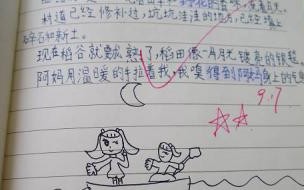 村道已经修补过，坑坑洼洼的地方，已经填上
碎石和新土。
现在稻谷就要成熟了，稻田像一片月光镀亮的银毯。
阿妈用温暖的手拉着我，我嗅得到阿妈身上的气
9.7